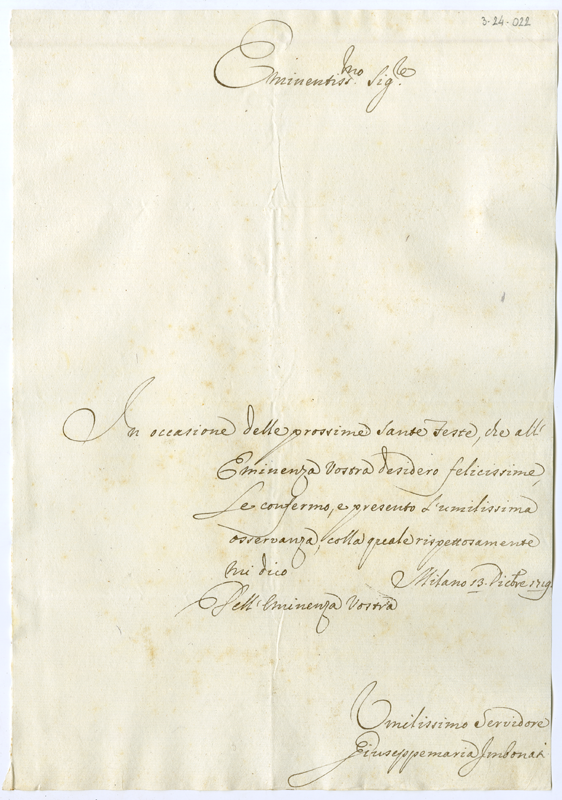 3-24-022
Eminentiss.mo Sig.re
In occasione delle prossime Sante Feste, che all'
Eminenza Vostra desidero felicissime,
Le confermo, e presento l'umilissima
osservanza, colla quale rispettosamente
mi dico Milano 13. Dicbre 1719.
Dell'Eminenza Vostra
Umilissimo Servidore
Giuseppemaria Imbonat